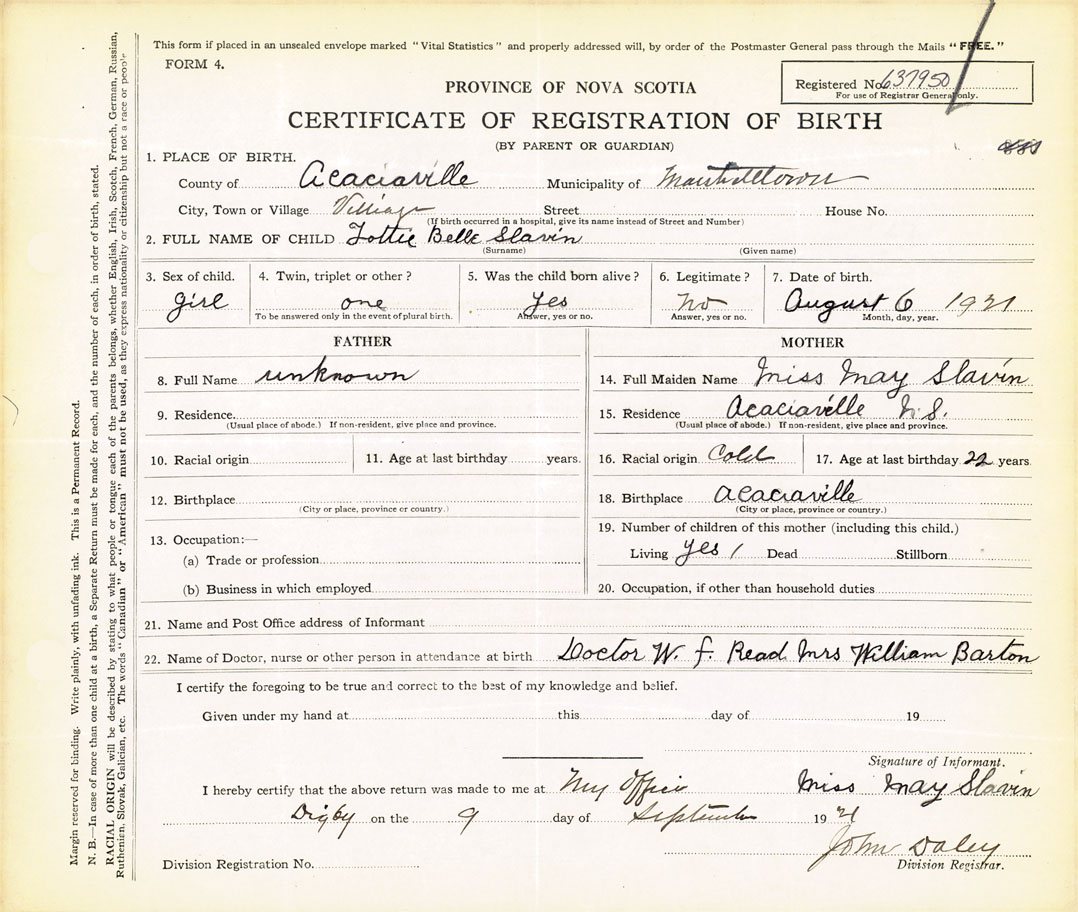 This form if placed in an unsealed envelope marked "Vital Statistics" and properly addressed will, by order of the Postmaster General pass through the Mails "FREE."
FORM 4.
Registered No. 637950
For use of Registrar General only.
PROVINCE OF NOVA SCOTIA
CERTIFICATE OF REGISTRATION OF BIRTH
(BY PARENT OR GUARDIAN)
1. PLACE OF BIRTH.
County of Acaciaville Municipality of Marshalltown
City, Town or Village Village Street House No.
(If birth occurred in a hospital, give its name instead of Street and Number)
2. FULL NAME OF CHILD Tottie Belle Slavin
(Surname) (Given name)
3. Sex of child. 4. Twin, triplet or other? 5. Was the child born alive? 6. Legitimate? 7. Date of birth.
girl one Yes No August 6 1921
To be answered only in the event of plural birth. Answer, yes or no. Answer, yes or no. Month, day, year.
FATHER MOTHER
8. Full Name unknown
14. Full Maiden Name Miss May Slavin
9. Residence.
(Usual place of abode.) If non-resident, give place and province.
15. Residence Acaciaville N.S.
(Usual place of abode.) If non-resident, give place and province.
10. Racial origin 11. Age at last birthday years.
16. Racial origin Cold 17. Age at last birthday 22 years.
12. Birthplace
(City or place, province or country.)
18. Birthplace Acaciaville
(City or place, province or country.)
13. Occupation:—
(a) Trade or profession
(b) Business in which employed
19. Number of children of this mother (including this child.)
Living yes 1 Dead Stillborn
20. Occupation, if other than household duties
21. Name and Post Office address of Informant
22. Name of Doctor, nurse or other person in attendance at birth Doctor W. F. Read Mrs William Barton
I certify the foregoing to be true and correct to the best of my knowledge and belief.
Given under my hand at this day of 19
Signature of Informant.
I hereby certify that the above return was made to me at My Office Miss May Slavin
Digby on the 9 day of September 19 21
John Daley
Division Registration No. Division Registrar.
Margin reserved for binding. Write plainly, with unfading ink. This is a Permanent Record.
N. B.—In case of more than one child at a birth, a Separate Return must be made for each, and the number of each, in order of birth, stated.
RACIAL ORIGIN will be described by stating to what people or tongue each of the parents belongs, whether English, Irish, Scotch, French, German, Russian,
Ruthenian, Slovak, Galician, etc. The words "Canadian" or "American" must not be used, as they express nationality or citizenship but not a race or people